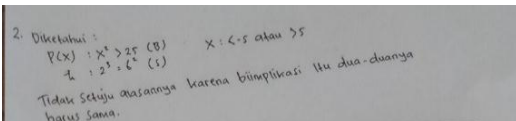 2. Diketahui :
P(x) : x² > 25 (B) x : <-5 atau >5
: 2³ = 6² (S)
Tidak Setuju alasannya karena biimplikasi itu dua-duanya
harus sama.